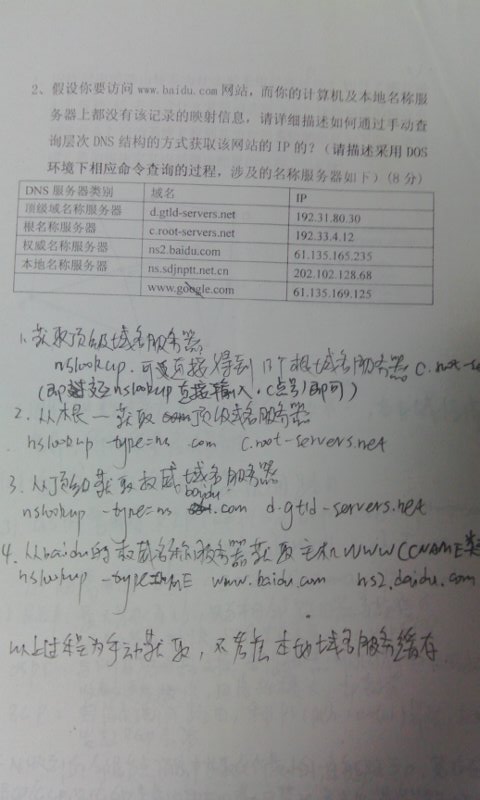 2、假设你要访问 www.baidu.com 网站，而你的计算机及本地名称服
务器上都没有该记录的映射信息，请详细描述如何通过手动查
询层次 DNS 结构的方式获取该网站的 IP 的？（请描述采用 DOS
环境下相应命令查询的过程，涉及的名称服务器如下）(8 分)
DNS 服务器类别 域名 IP
顶级域名称服务器 d.gtld-servers.net 192.31.80.30
根名称服务器 c.root-servers.net 192.33.4.12
权威名称服务器 ns2.baidu.com 61.135.165.235
本地名称服务器 ns.sdjnptt.net.cn 202.102.128.68
www.google.com 61.135.169.125
1. 获取顶级域名服务器
nslookup . 可直接得到13个根域名服务器 c.root-s
(即 nslookup 直接输入 .(点号)即可)
2. 从根一获取 顶级域名服务器
nslookup -type=ns com c.root-servers.net
3. 从顶级获取权威域名服务器
nslookup -type=ns baidu.com d.gtld-servers.net
4. 从baidu的权威名称服务器获取主机WWW(CNAME类
nslookup -type www.baidu.com ns2.daidu.com
以上过程为手动获取，不考虑本地域名服务缓存